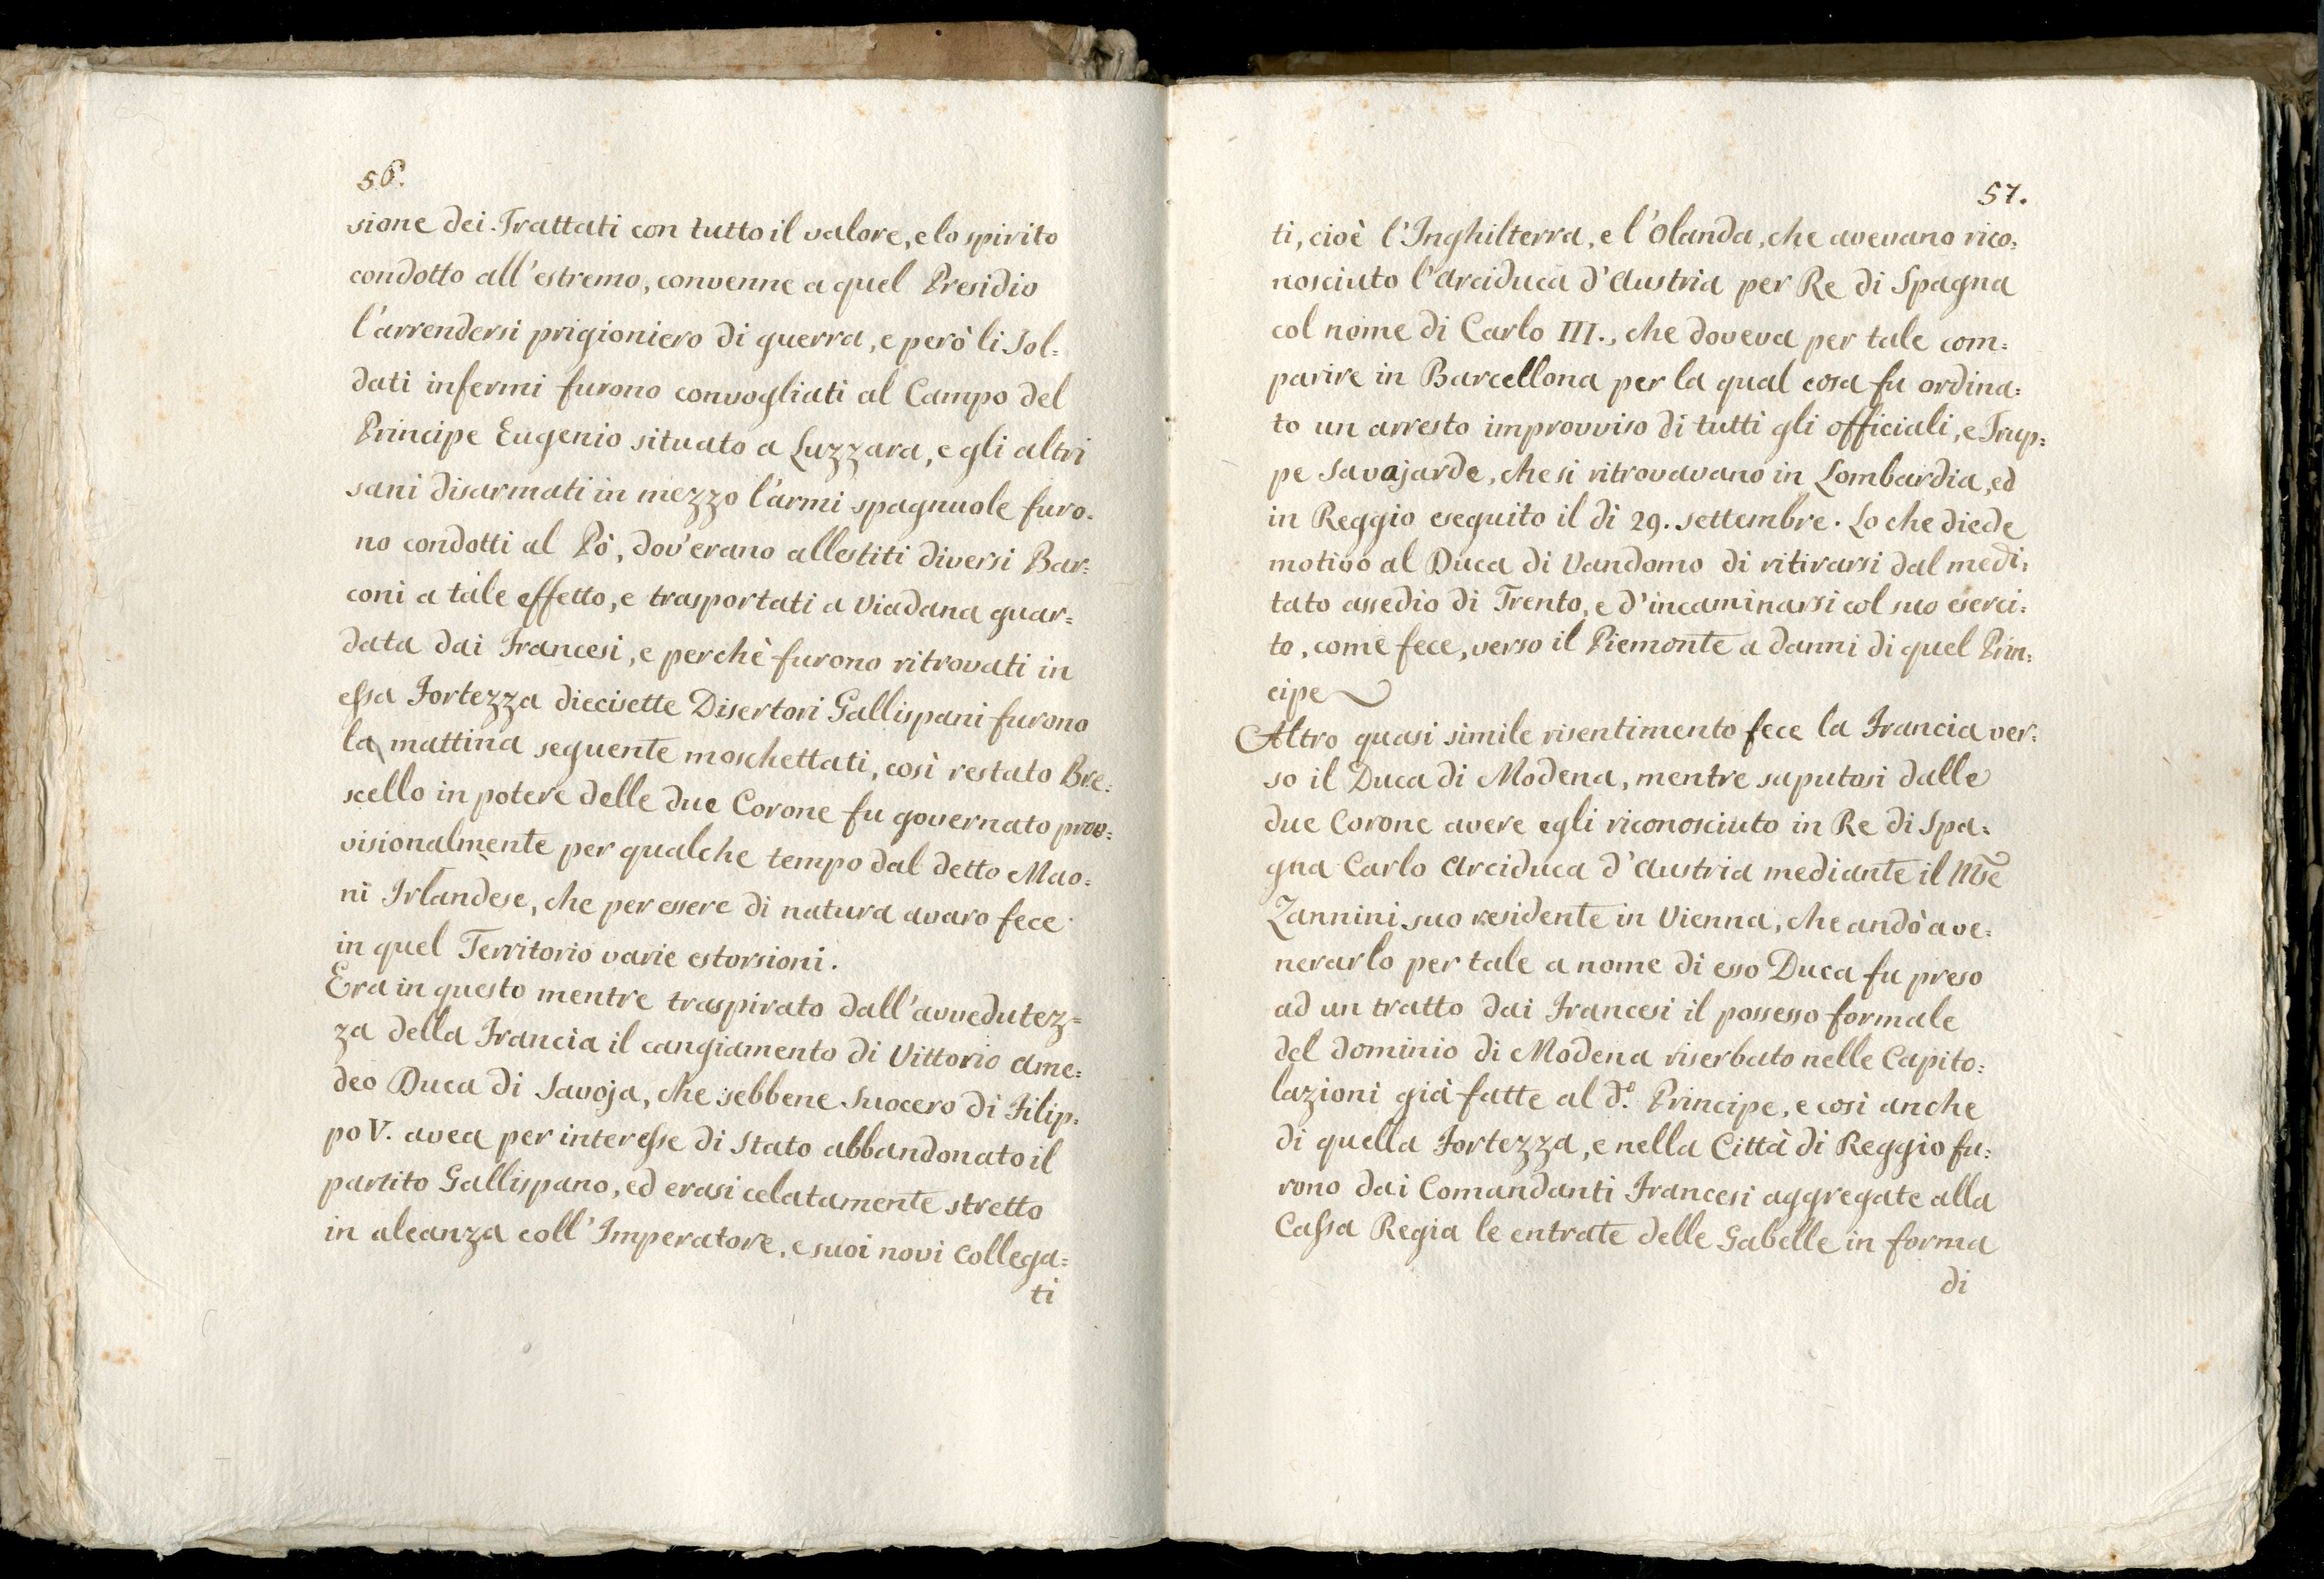 56.
sione dei Trattati con tutto il valore, e lo spirito
condotto all'estremo, convenne a quel Presidio
l'arrendersi prigioniero di guerra, e però li Sol=
dati infermi furono convogliati al Campo del
Principe Eugenio situato a Luzzara, e gli altri
sani disarmati in mezzo l'armi spagnuole furo=
no condotti al Pò, dov'erano allestiti diversi Bar=
coni a tale effetto, e trasportati a Viadana guar=
data dai Francesi, e perchè furono ritrovati in
essa Fortezza diecisette Disertori Gallispani furono
la mattina seguente moschettati, così restato Bre=
scello in potere delle due Corone fu governato prov=
visionalmente per qualche tempo dal detto Mao=
ni Irlandese, che per essere di natura avaro fece
in quel Territorio varie estorsioni.
Era in questo mentre traspirato dall'avvedutez=
za della Francia il cangiamento di Vittorio Ame=
deo Duca di Savoja, che sebbene Suocero di Filip=
po V. avea per interesse di Stato abbandonato il
partito Gallispano, ed erasi celatamente stretto
in aleanza coll'Imperatore, e suoi novi Collega=
ti
57.
ti, cioè l'Inghilterra, e l'Olanda, che avevano rico=
nosciuto l'Arciduca d'Austria per Re di Spagna
col nome di Carlo III., che doveva per tale com=
parire in Barcellona per la qual cosa fu ordina=
to un arresto improvviso di tutti gli officiali, e Trup=
pe Savojarde, che si ritrovavano in Lombardia, ed
in Reggio eseguito il dì 29. settembre. Lo che diede
motivo al Duca di Vandomo di ritirarsi dal medi=
tato assedio di Trento, e d'incaminarsi col suo eserci=
to, come fece, verso il Piemonte a danni di quel Prin=
cipe
Altro quasi simile risentimento fece la Francia ver=
so il Duca di Modena, mentre saputosi dalle
due Corone avere egli riconosciuto in Re di Spa=
gna Carlo Arciduca d'Austria mediante il Mse
Zannini suo residente in Vienna, che andò a ve=
nerarlo per tale a nome di esso Duca fu preso
ad un tratto dai Francesi il possesso formale
del dominio di Modena riserbato nelle Capito=
lazioni già fatte al d.º Principe, e così anche
di quella Fortezza, e nella Città di Reggio fu=
rono dai Comandanti Francesi aggregate alla
Cassa Regia le entrate delle Gabelle in forma
di